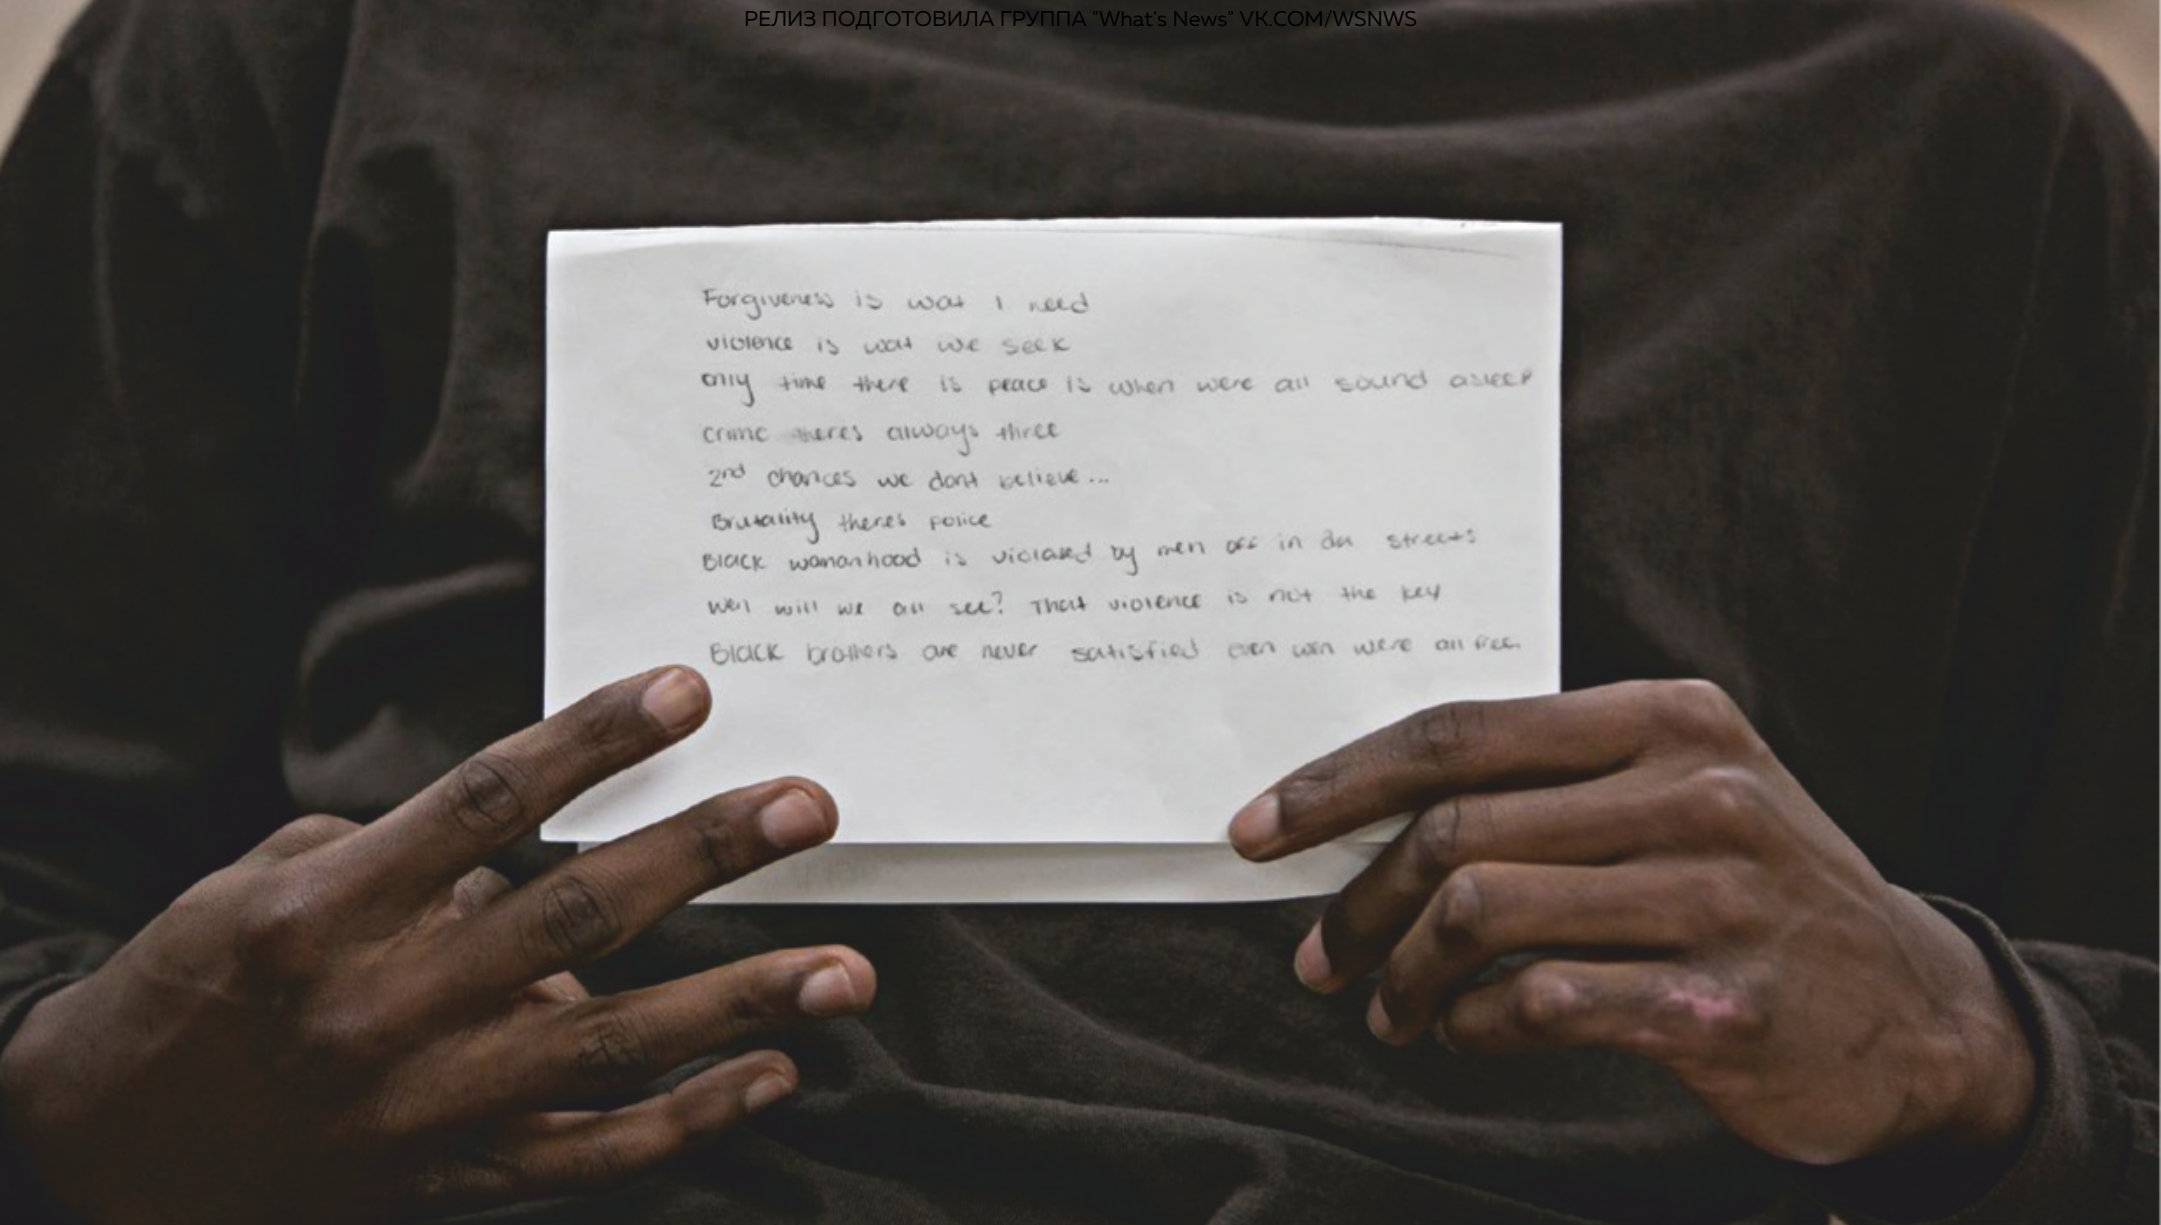 РЕЛИЗ ПОДГОТОВИЛА ГРУППА "What's News" VK.COM/WSNWS
Forgiveness is wat I need
violence is wat we seek
only time there is peace is when were all sound asleep
crime theres always three
2nd chances we dont believe...
Brutality theres police
Black womanhood is violated by men off in da streets
wen will we all see? That violence is not the key
Black brothers are never satisfied even wen were all free.